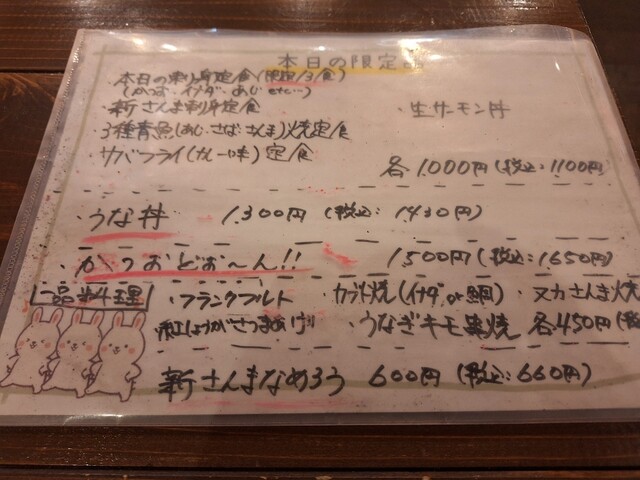 本日の限定品
・本日の刺身定食(限定13食)
(かつお・イナダ・あじ etc…)
・新さんま刺身定食
・生サーモン丼
・3種青魚(あじ・さば・さんま)焼定食
・サバフライ(カレー味)定食
各1000円(税込:1100円)
・うな丼 1300円 (税込: 1430円)
・かつおどぉ〜ん!! 1500円(税込:1650円)
一品料理 ・フランクフルト ・カブト焼(イナダor鯛) ・ヌカさんま焼
・紅しょうがさつまあげ ・うなぎキモ串焼 各450円(税
・新さんまなめろう 600円 (税込:660円)